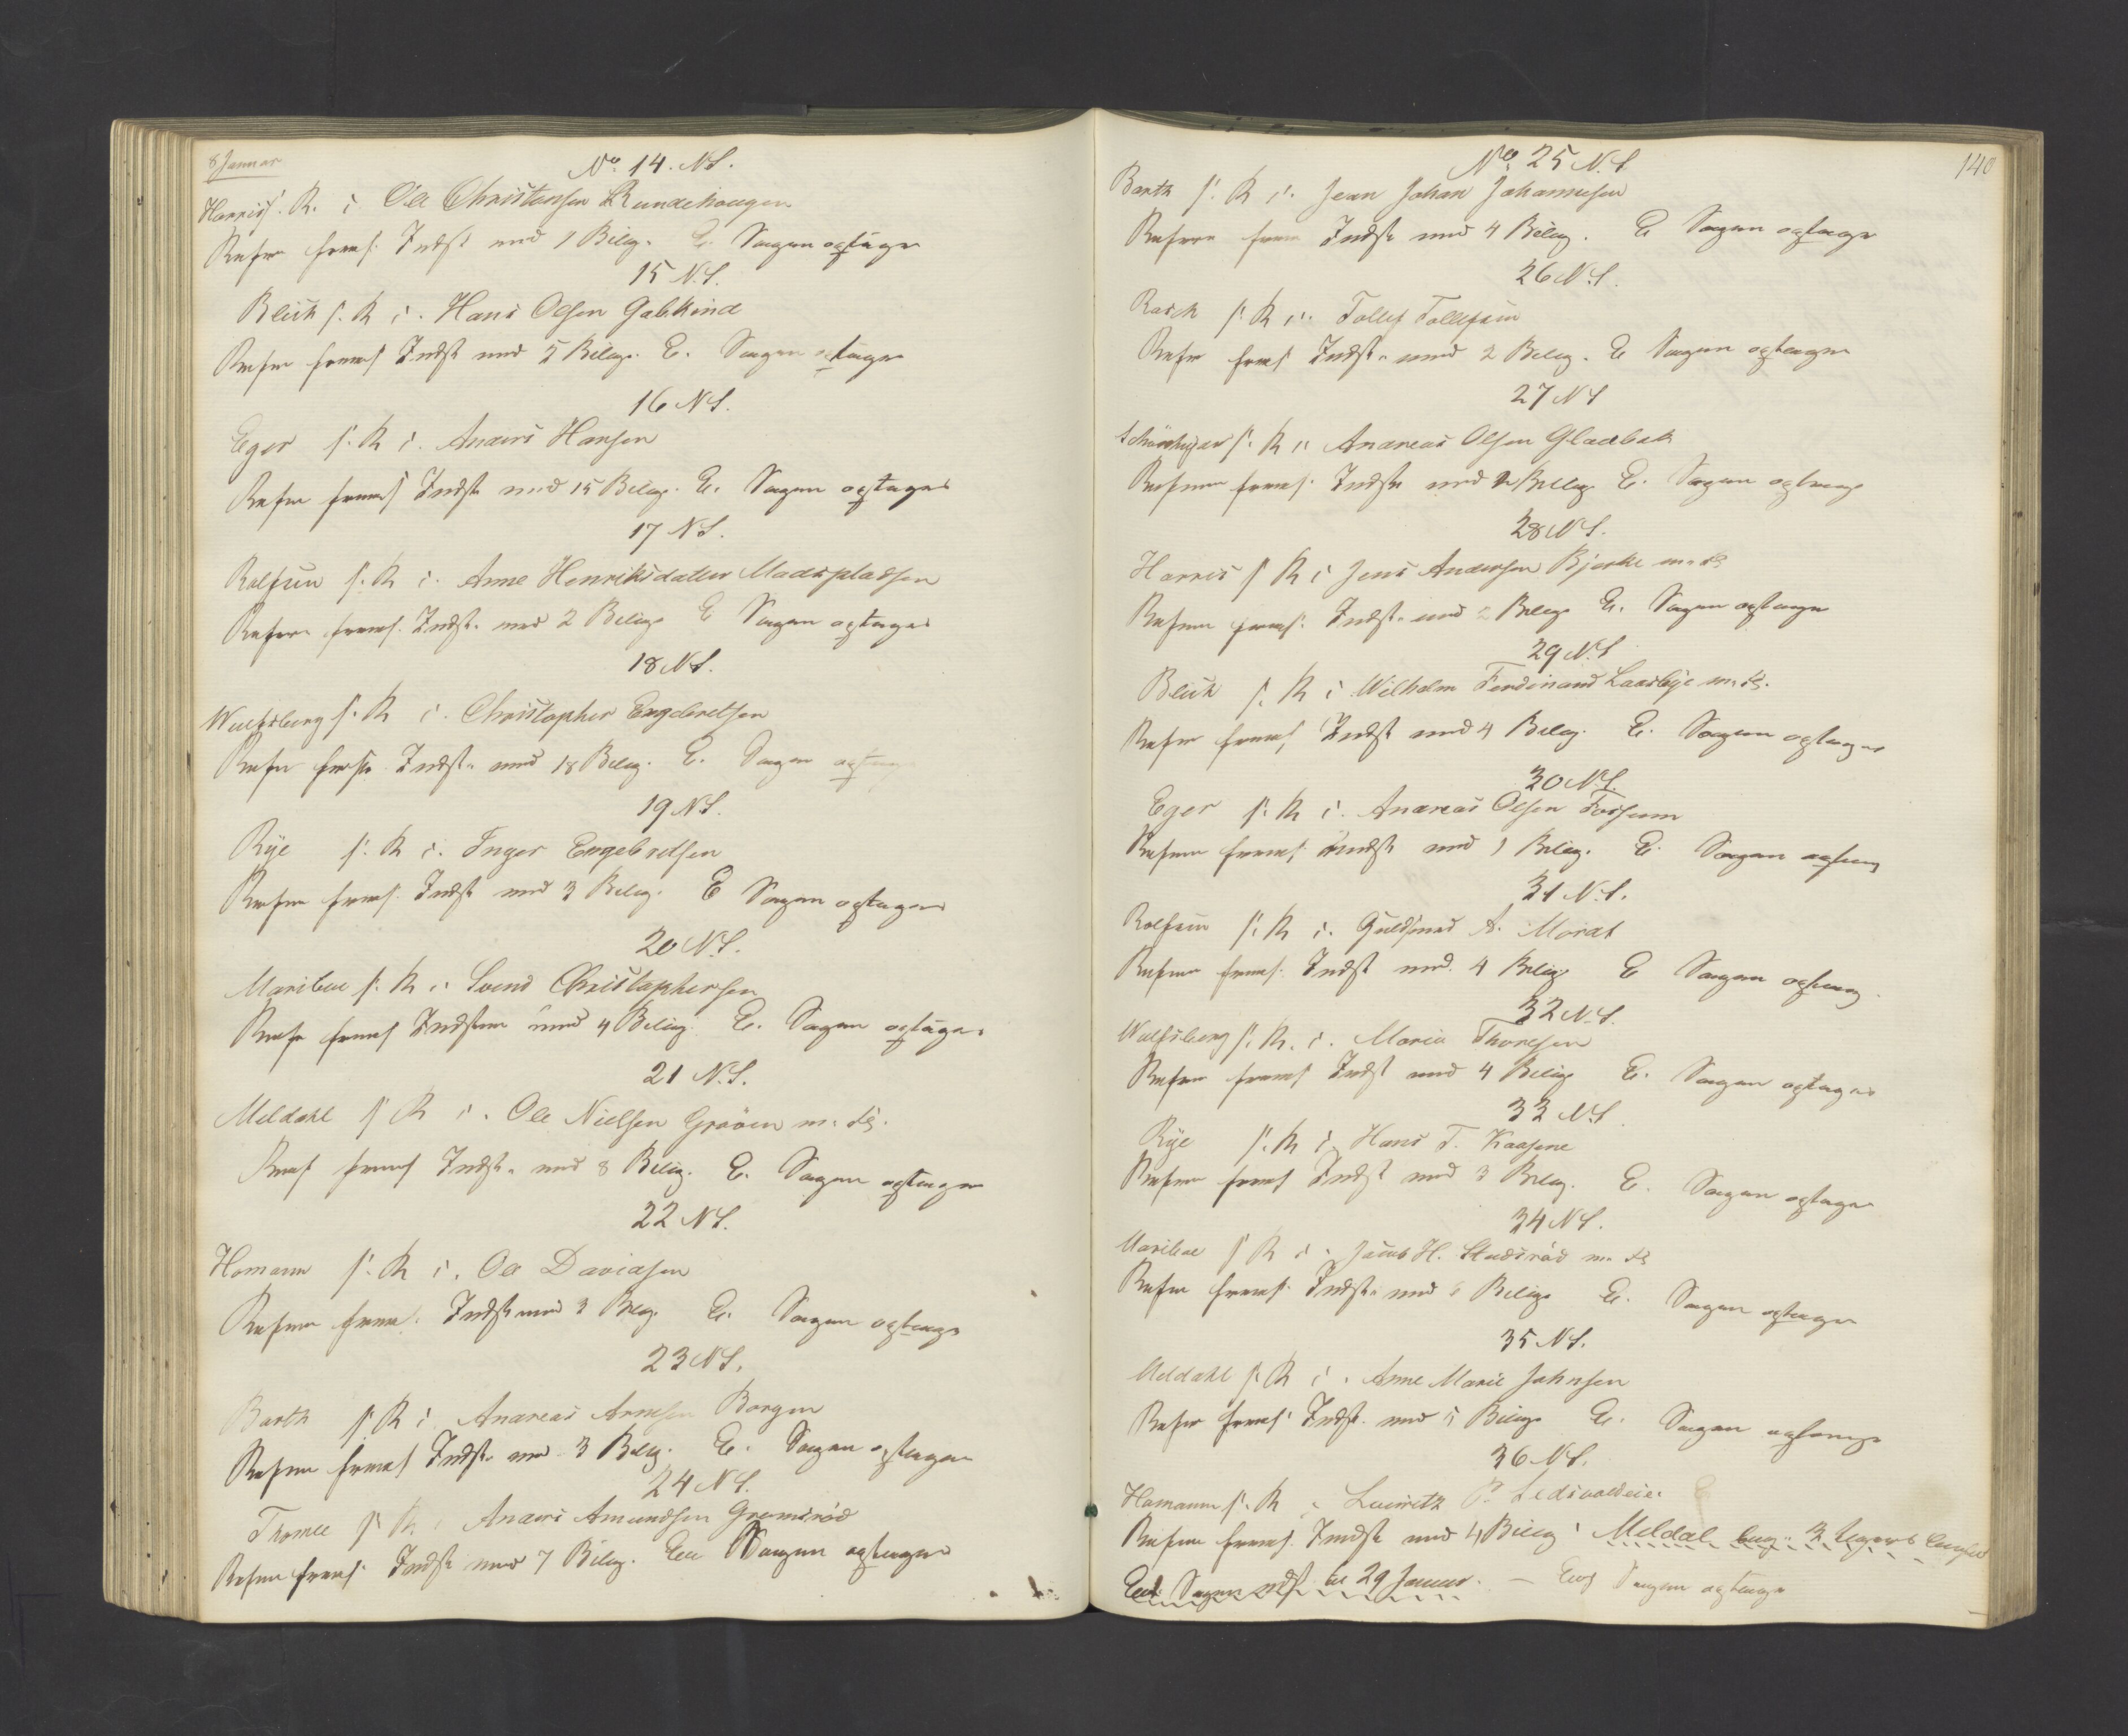 8 Januar
No. 14. NS.
Harris f. R. i. Ole Christansen Rundehaugen
Refr frems. Indst med 1 Bilag. E. Sagen optages
15 N.S.
Blich f. R i. Hans Olsen Gabkind
Refr frems Indst med 5 Bilage. E. Sagen optages
16 NS.
Eger f. R i. Anders Hansen
Refr frems Indst med 15 Bilag. E. Sagen optages
17 NS.
Rolfsen f. R i. Anne Henriksdatter Madspladsen
Refr frems. Indst. med 2 Bilag E Sagen optages
18 NS.
Wulfsberg f. R i. Christopher Engebretsen
Refr Indst. med 18 Bilag. E. Sagen optages
19 NS.
Rye f. R i. Inger Engebretsen
Refr frems. Indst med 3 Bilag. E Sagen optages
20 NS.
Mariboe f. R i. Svend Christophersen
Refr frems Indstn med 4 Bilag. E. Sagen optages
21 N.S.
Meldahl f R i. Ole Nielsen Gråöen m. fl.
Refr frems Indst. med 8 Bilag. E. Sagen optages
22 NS.
Homann f. R i. Ole Davidsen
Refr frems. Indst med 3 Bilag E. Sagen optages
23 NS.
Barth f R i. Andreas Arnesen Borgen
Refr frems Indst. med 3 Bilag. E. Sagen optages
24 NS.
Thomle f R i Anders Amundsen Gromsröd
Refr frems. Indst med 7 Bilag. E Sagen optages
140
No. 25 N.S
Barth f. R i. Jean Johan Johannesen
Refr frem Indst med 4 Bilag. E Sagen optages
26 N.S.
Rasch f. R i. Tollef Tollefsen
Refr frems Indst. med 2 Bilag. E Sagen optages
27 NS
f. R i. Andreas Olsen Gladbak
Refr frems. Indst med 2 Bilag E. Sagen optages
28 NS.
Harris f R i Jens Andersen Bjerke m. fl
Refr frems. Indst. med 2 Bilag E. Sagen optages
29 N.S
Blich f. R i. Wilhelm Ferdinand Laasbye m. fl.
Refr frems Indst med 4 Bilag. E. Sagen optages
30 NS.
Eger f. R i. Andreas Olsen Fossum
Refr frems. Indst med 1 Bilag. E. Sagen optages
31 N.S.
Rolfsen f. R i. Guldsmed A. Mordt
Refr frems. Indst med 4 Bilag E Sagen optages
32 NS.
Wulfsberg f. R. i. Maria Thoresen
Refr frems Indst med 4 Bilag E. Sagen optages
33 NS
Rye f. R i. Hans T. Kaasene
Refr frems Indst med 3 Bilag. E. Sagen optages
34 NS.
Mariboe f R i. Jacob H. Studsröd m. fl
Refr frems. Indst. med Bilag E. Sagen optages
35 NS.
Meldahl f. R i. Anne Marie Johnsen
Refr frems. Indst. med 5 Bilag E. Sagen optages
36 NS.
Homann f. R i P. Lidsvoldeie. E
Refr frems. Indst med 4 Bilag. Meldal
Sagen uds. til 29 Januar. — Sagen optages